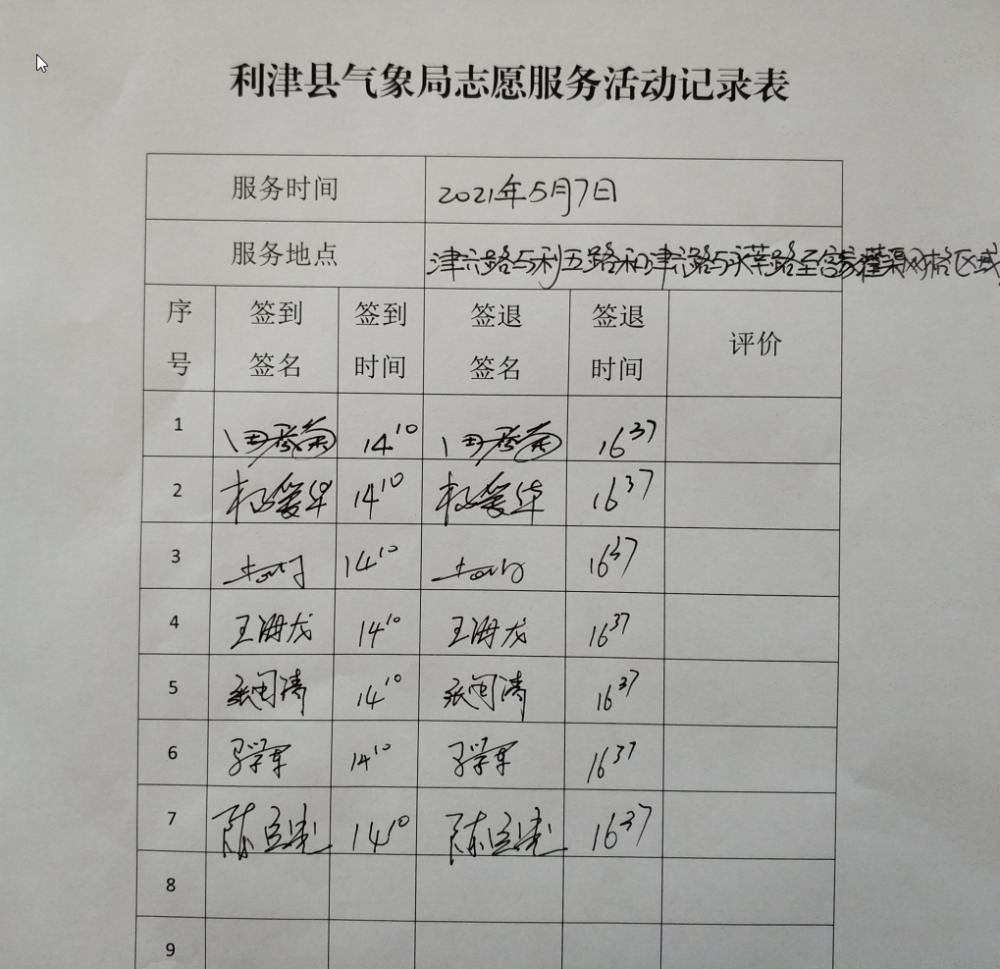 利津县气象局志愿服务活动记录表
服务时间 2021年5月7日
服务地点 津六路与利五路和津六路与永莘路至宫家灌渠网格区域
序号 签到签名 签到时间 签退签名 签退时间 评价
1 田秀菊 14¹⁰ 田秀菊 16³⁷
2 杨爱华 14¹⁰ 杨爱华 16³⁷
3 14¹⁰ 16³⁷
4 王海龙 14¹⁰ 王海龙 16³⁷
5 张闽清 14¹⁰ 张闽清 16³⁷
6 14¹⁰ 16³⁷
7 14¹⁰ 16³⁷
8
9